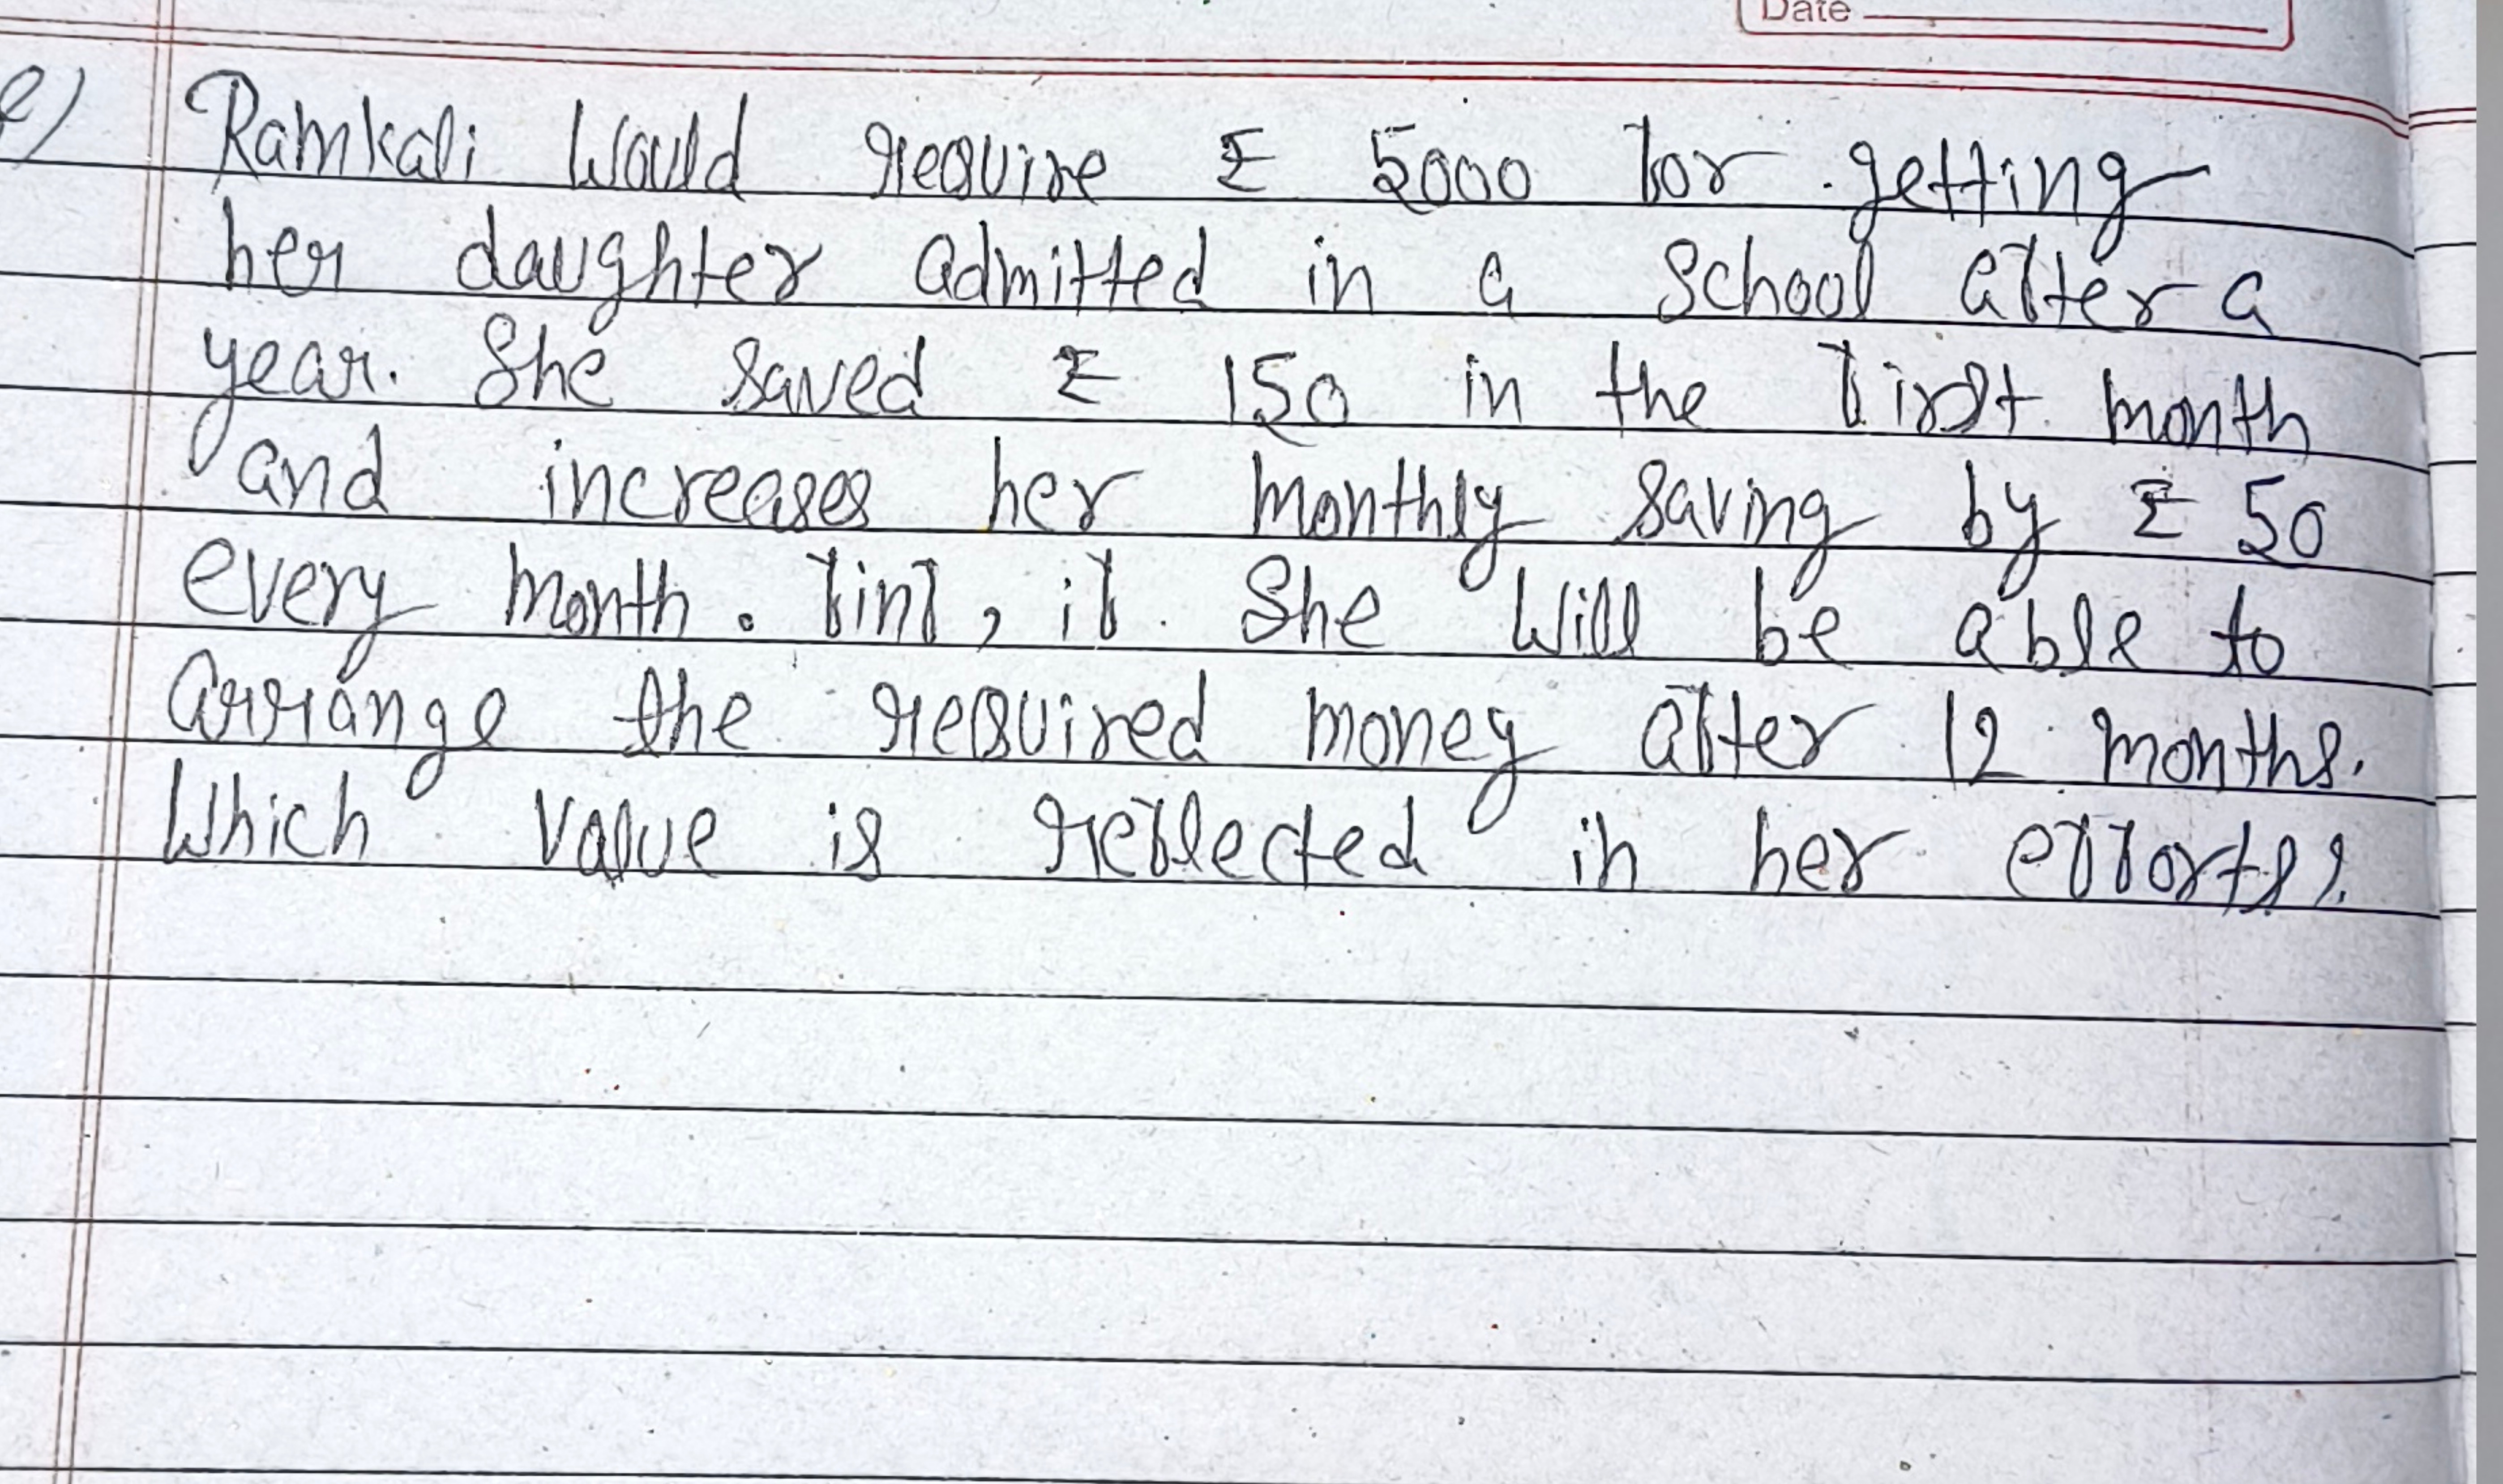 Date
e) Ramkali Would require ₹ 5000 for getting
her daughter admitted in a School after a
year. She saved ₹ 150 in the first month
and increases her monthly saving by ₹ 50
every month. find, if She Will be able to
arrange the required money after 12 months.
Which value is reflected in her efforts?